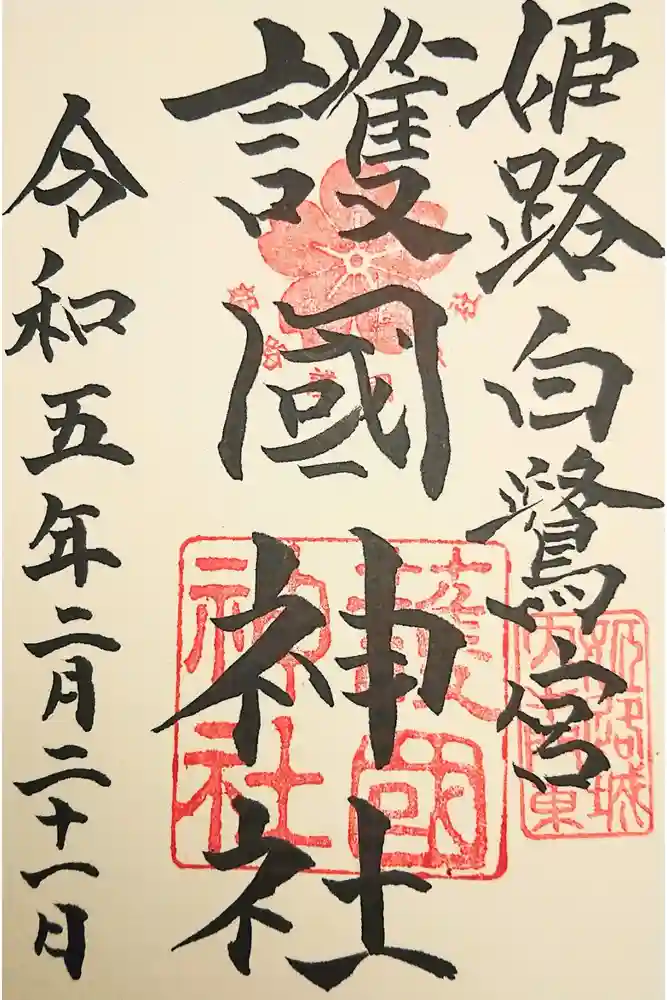 姫路白鷺宮
護國神社
令和五年二月二十一日
護國
神社
姫路城
内南東